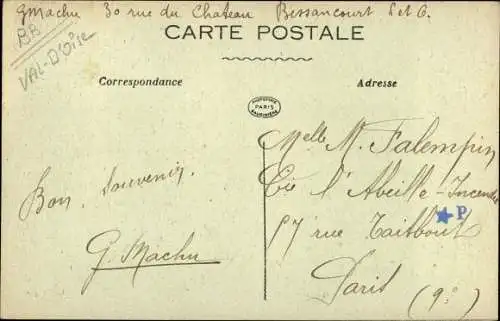 GMachu 30 rue du Chateau Bessancourt S et O.
BB
VAL-D'Oise
CARTE POSTALE
Correspondance
Adresse
PARIS
Melle M. Falempin
Cie l'Abeille-Incendie
57 rue Taitbout
P
Paris
(9e)
Bon souvenir.
G. Machu